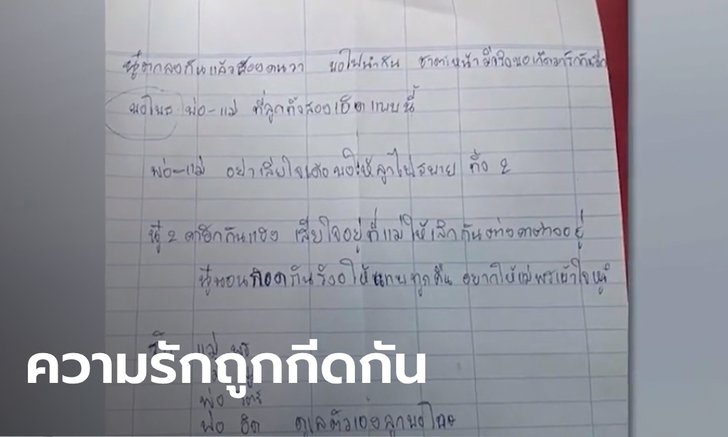 หนูตกลงกันแล้ว ขอไปนำกัน ชาติหน้ามีจริงขอเกิดมารักกันอีก
ขอโทษ พ่อ-แม่ ที่ลูกทั้งสองเฮ็ดแบบนี้
พ่อ-แม่ อย่าเสียใจเด้อขอให้ลูกไปสบาย ทั้ง 2
หนู 2 กันแฮง เสียใจอยู่ที่แม่ให้เลิกกัน อยู่
หนูนอนกอดกันร้องไห้ ทุกคืน อยากให้แม่พรเข้าใจหนู
แม่ พร
พ่อ
พ่อ ฮิต ดูแลตัวเอง ลูกขอโทษ
ความรักถูกกีดกัน